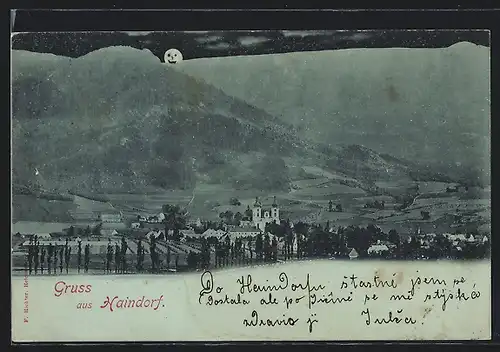 Gruss
aus Haindorf.
F. Richter
Do Haindorfu šťastně jsem se
Dostala ale po Jiřině se mě stýská
zdravio ji Julča.